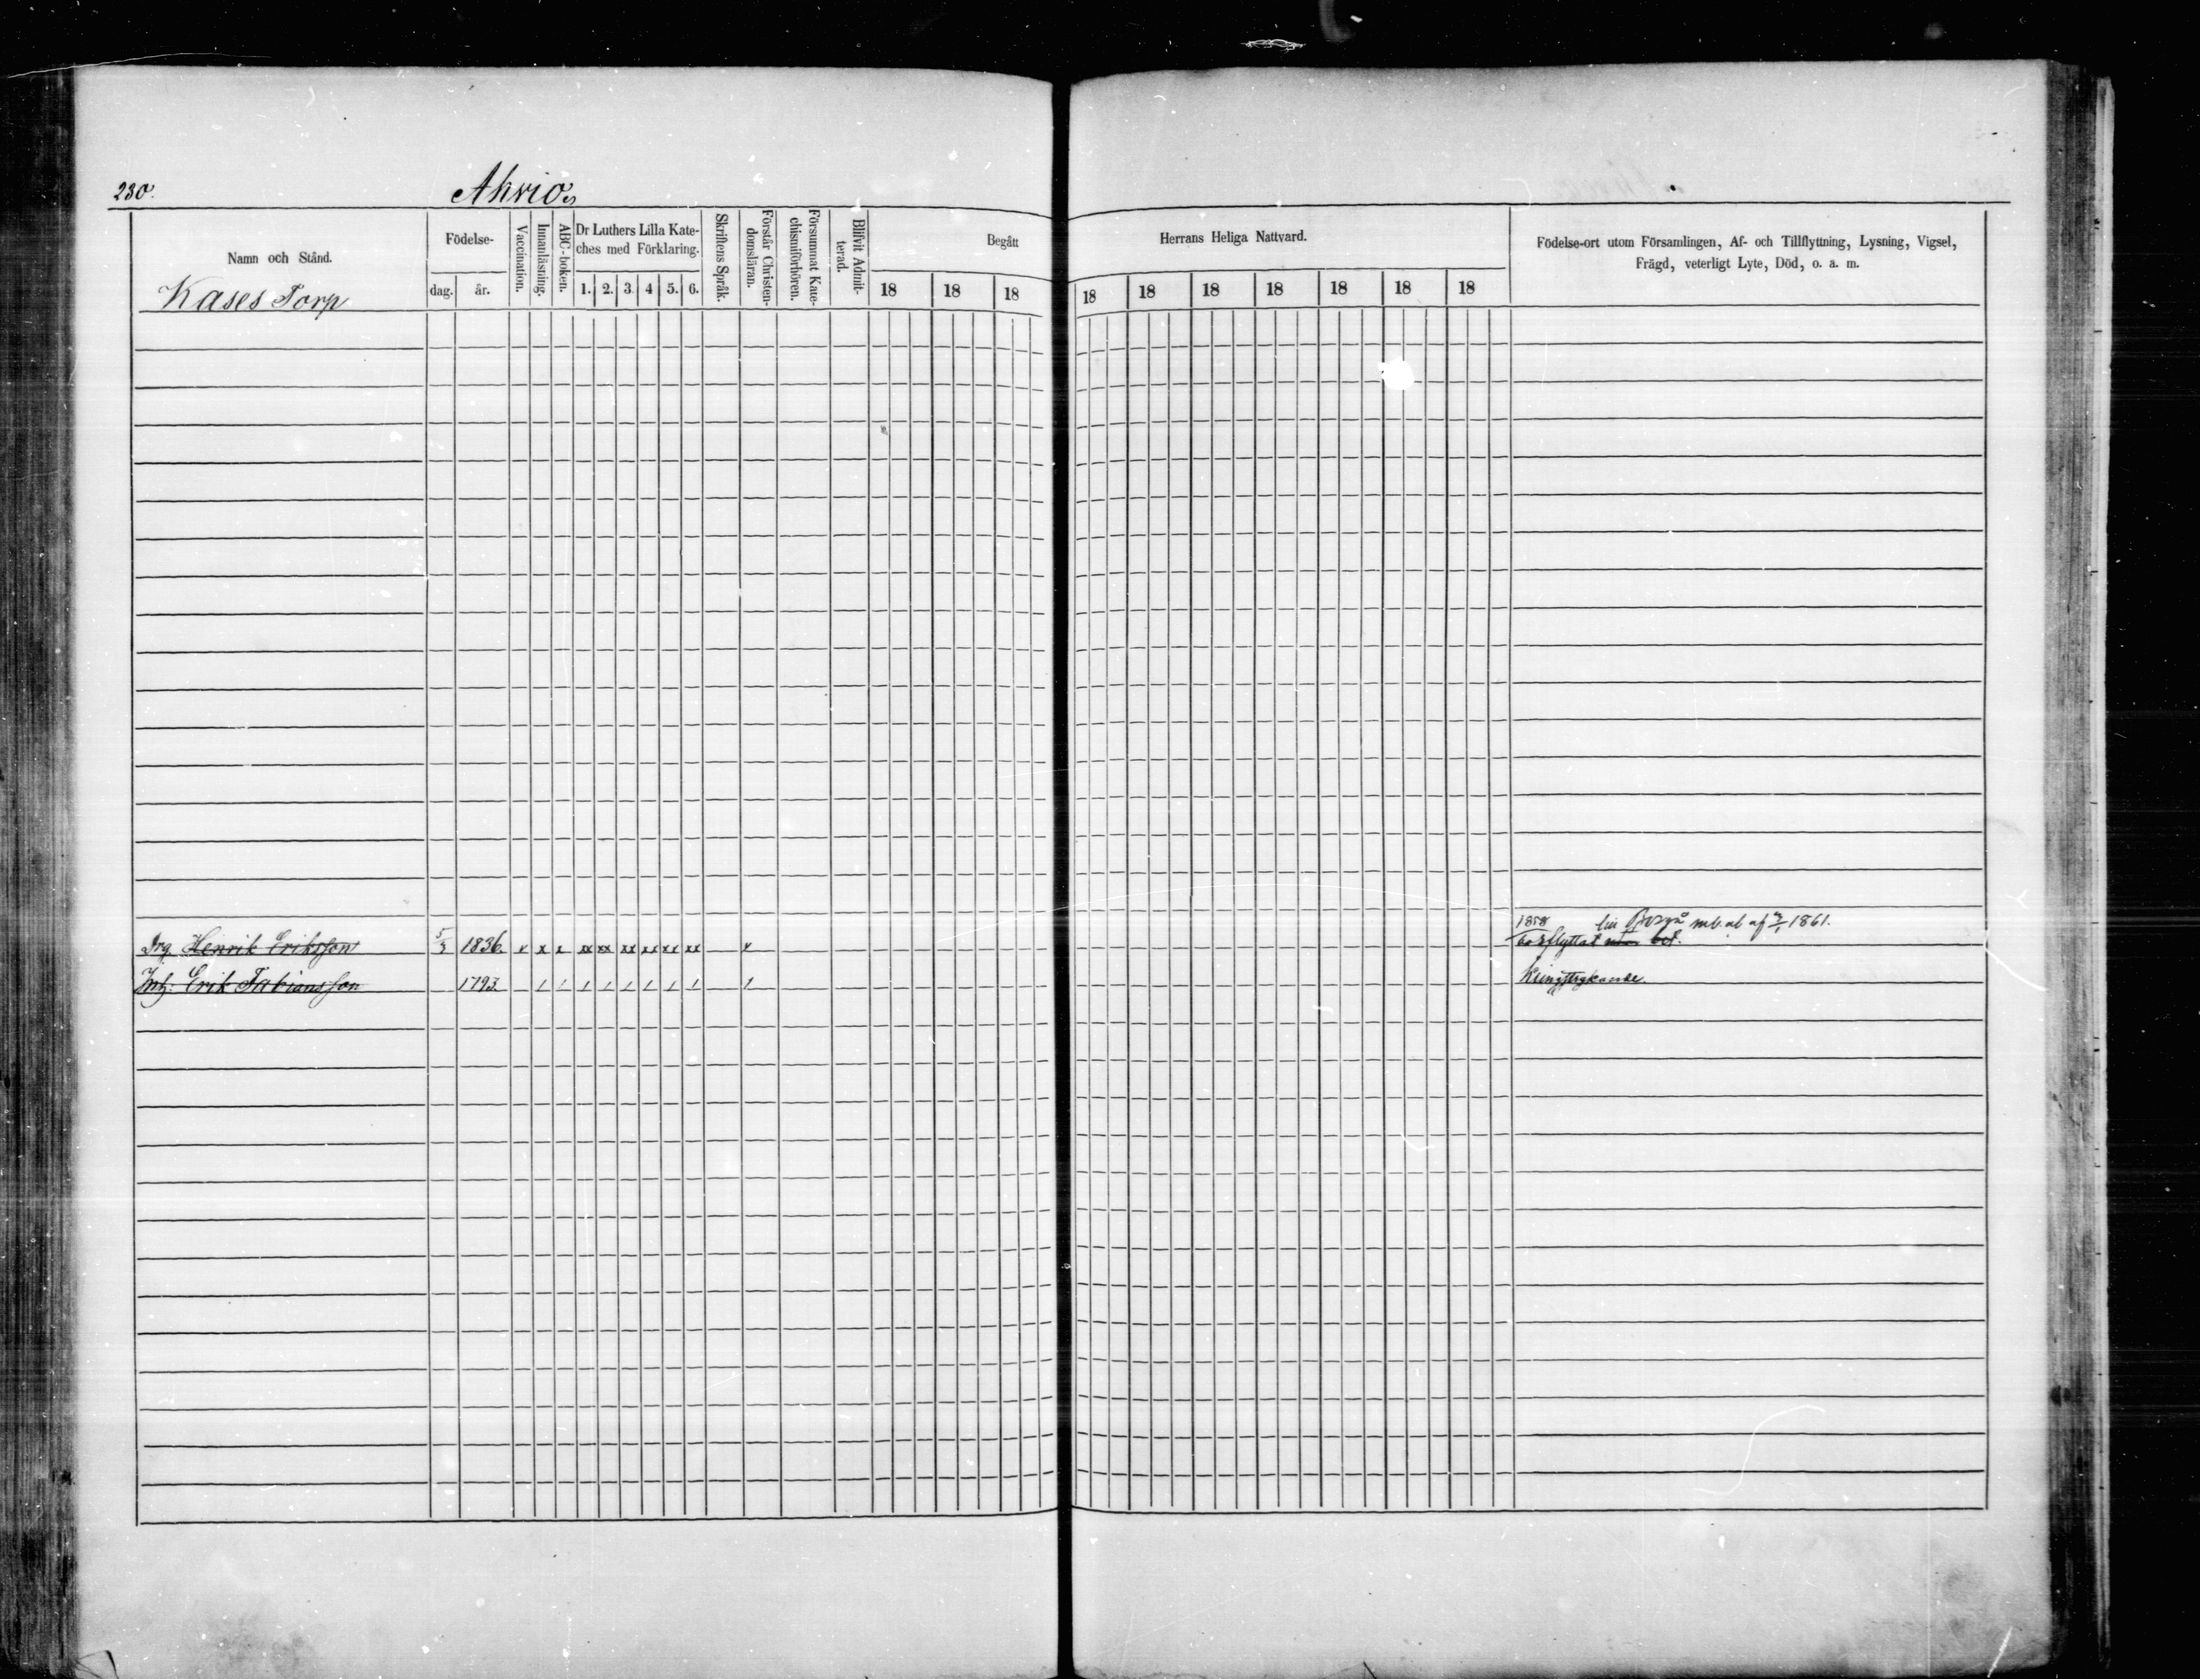 230.
Ahvio
Namn och Stånd.
Kases Torp
Födelse-
dag.
år.
Vaccination.
Innanläsning.
ABC-boken.
Dr Luthers Lilla Kate-
ches med Förklaring.
1. 2. 3. 4 5. 6.
Skriftens Språk.
Förstår Christen-
domsläran.
Försummat Kate-
chismiförhören.
Blifvit Admit-
terad.
Begått
18 18 18
Herrans Heliga Nattvard.
18 18 18 18 18 18 18
Födelse-ort utom Församlingen, Af- och Tillflyttning, Lysning, Vigsel,
Frägd, veterligt Lyte, Död, o. a. m.
1858 Borgå 1861.
Drg. Henrik Eriksson 5/3 1836. x x x xx xx xx xx xx xx x bortflyttat utan bet.
Inh: Erik Fabiansson 1793. / / / / / / / / /